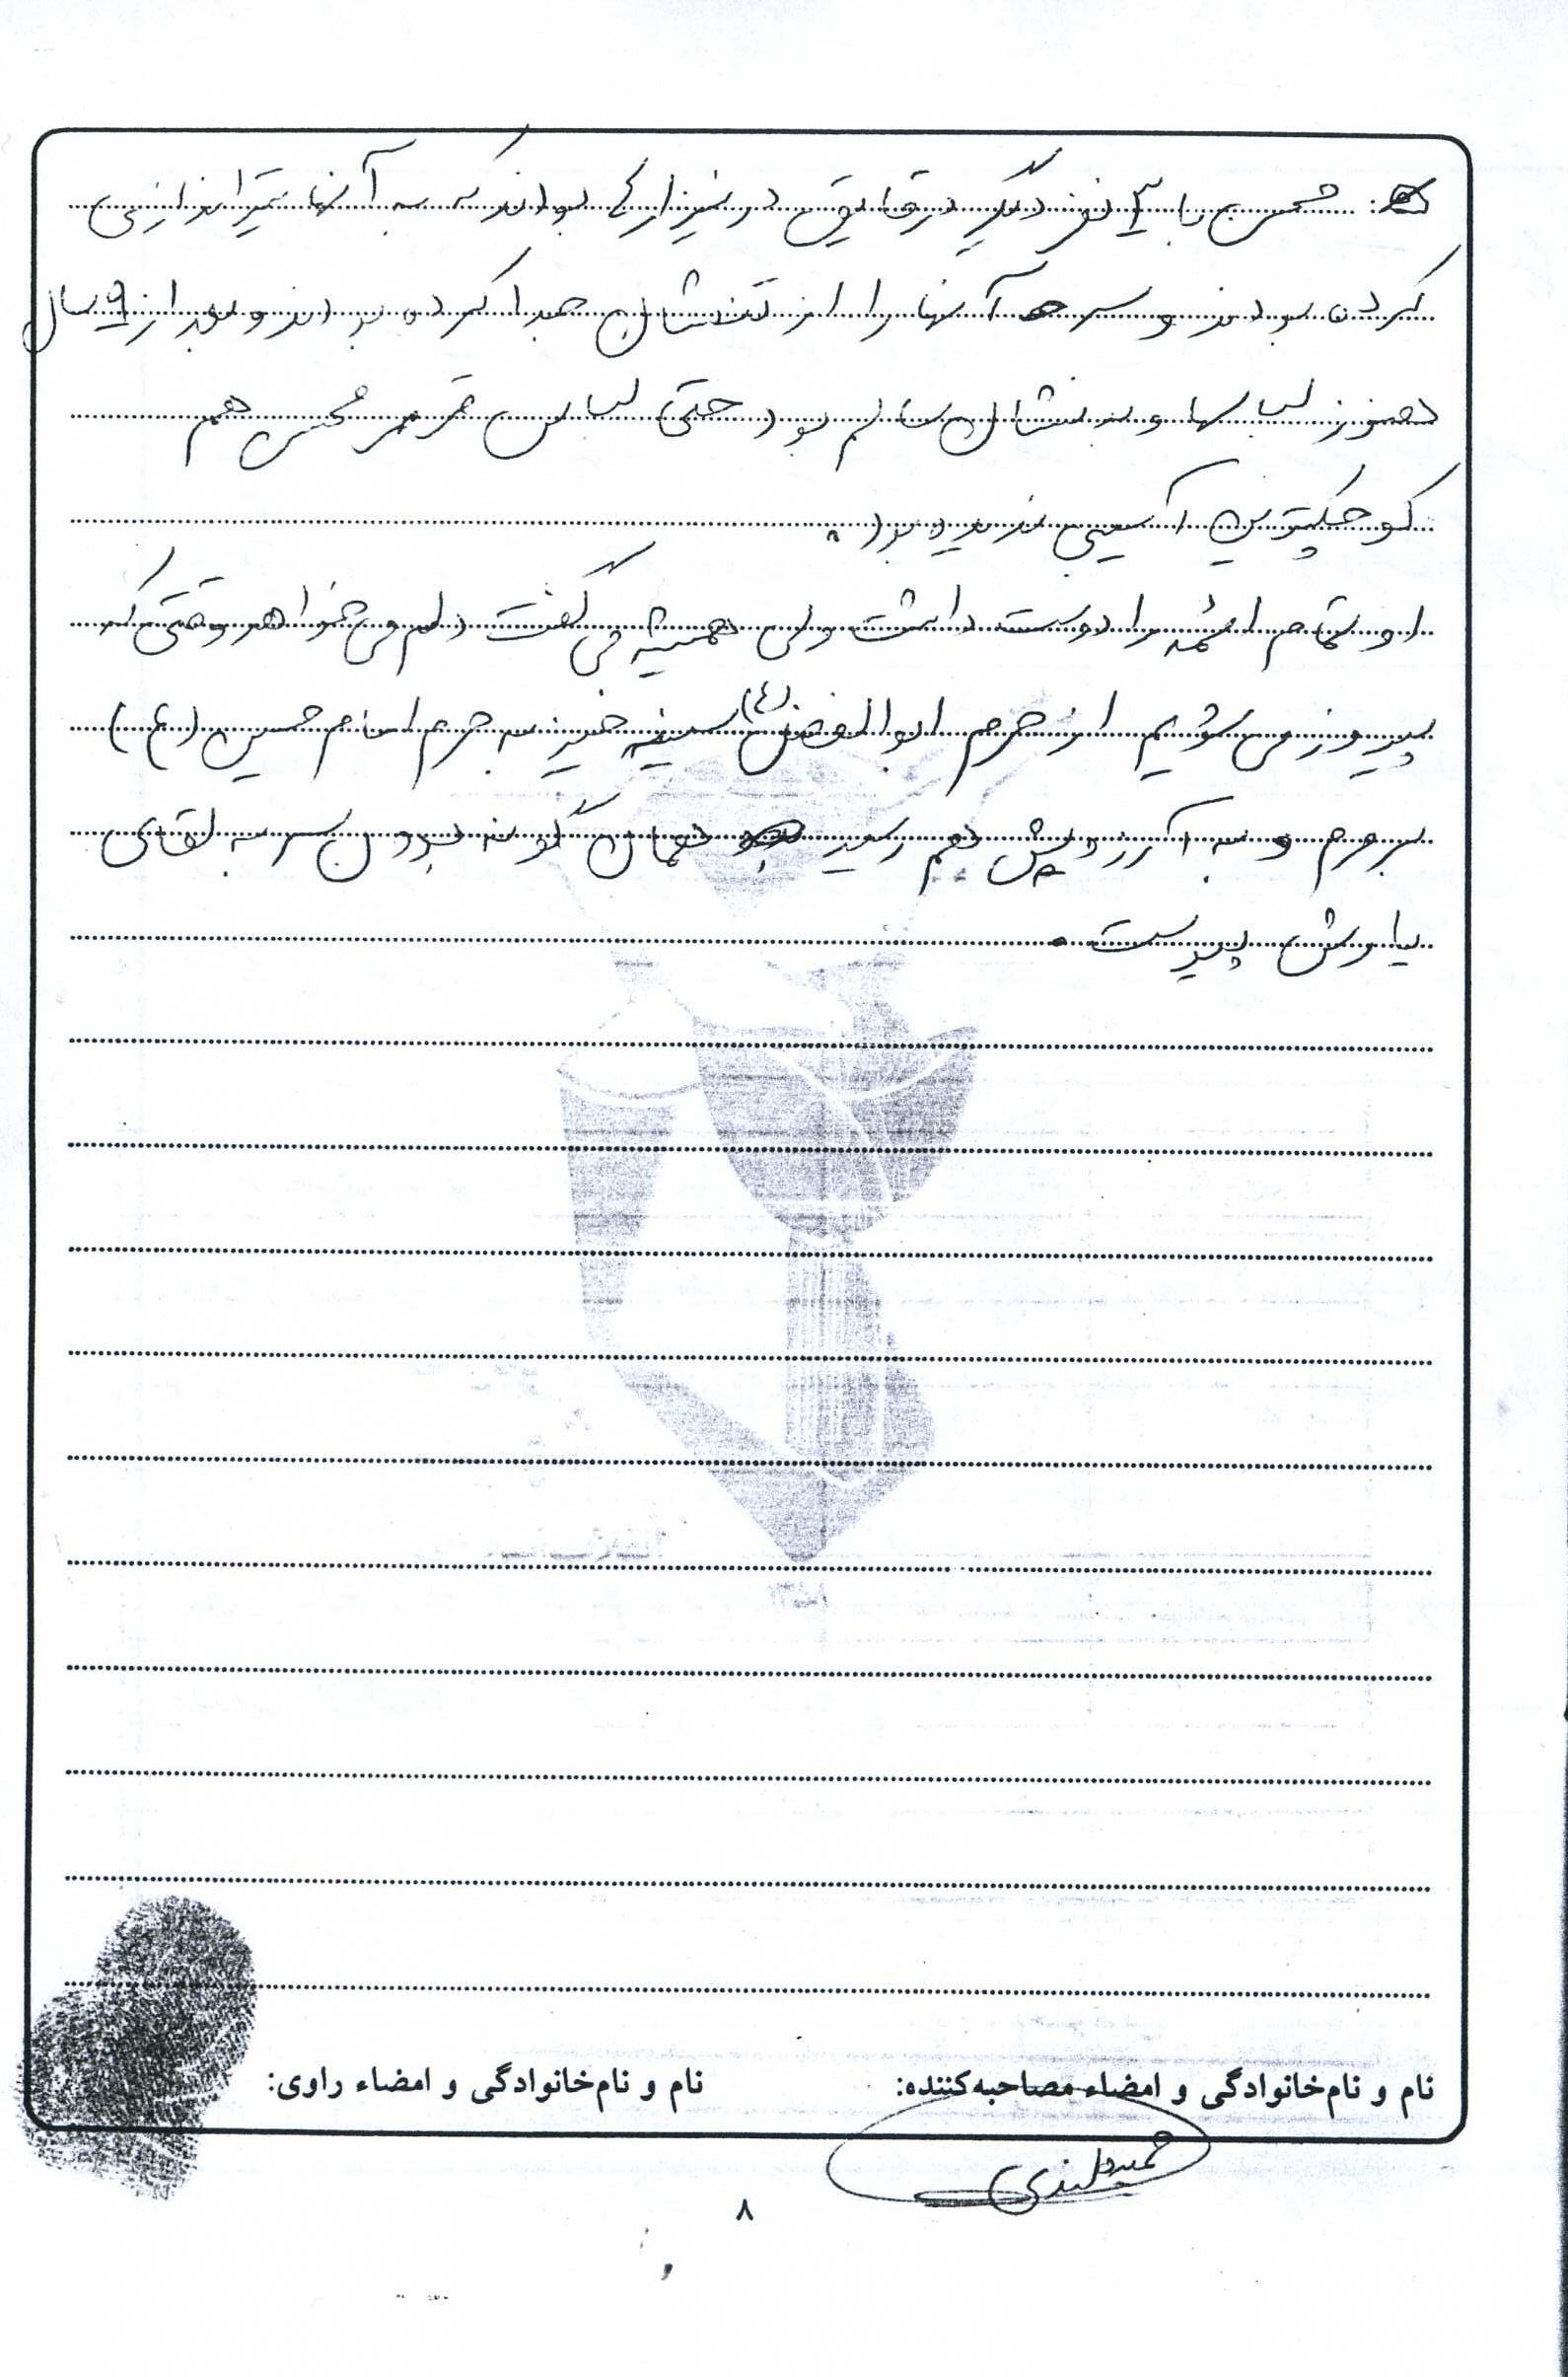 محسن با ۳ نفر دیگر در قایق در نیزارها بودند که به آنها تیراندازی
کرده بودند و سر آنها را از تنشان جدا کرده بودند و بعد از ۹ سال
هنوز لباسها و بدنشان سالم بود حتی لباس محسن هم
کوچکترین آسیبی ندیده بود.
او تمام ائمه را دوست داشت ولی همیشه می گفت دلم می خواهد وقتی که
پیروز می شویم از حرم ابوالفضل (ع) سینه خیز به حرم امام حسین (ع)
بروم و به آرزویش هم رسید همان گونه بدون سر به لقای
یارش پیوست.
نام و نام‌خانوادگی و امضاء مصاحبه‌کننده:
نام و نام‌خانوادگی و امضاء راوی:
۸